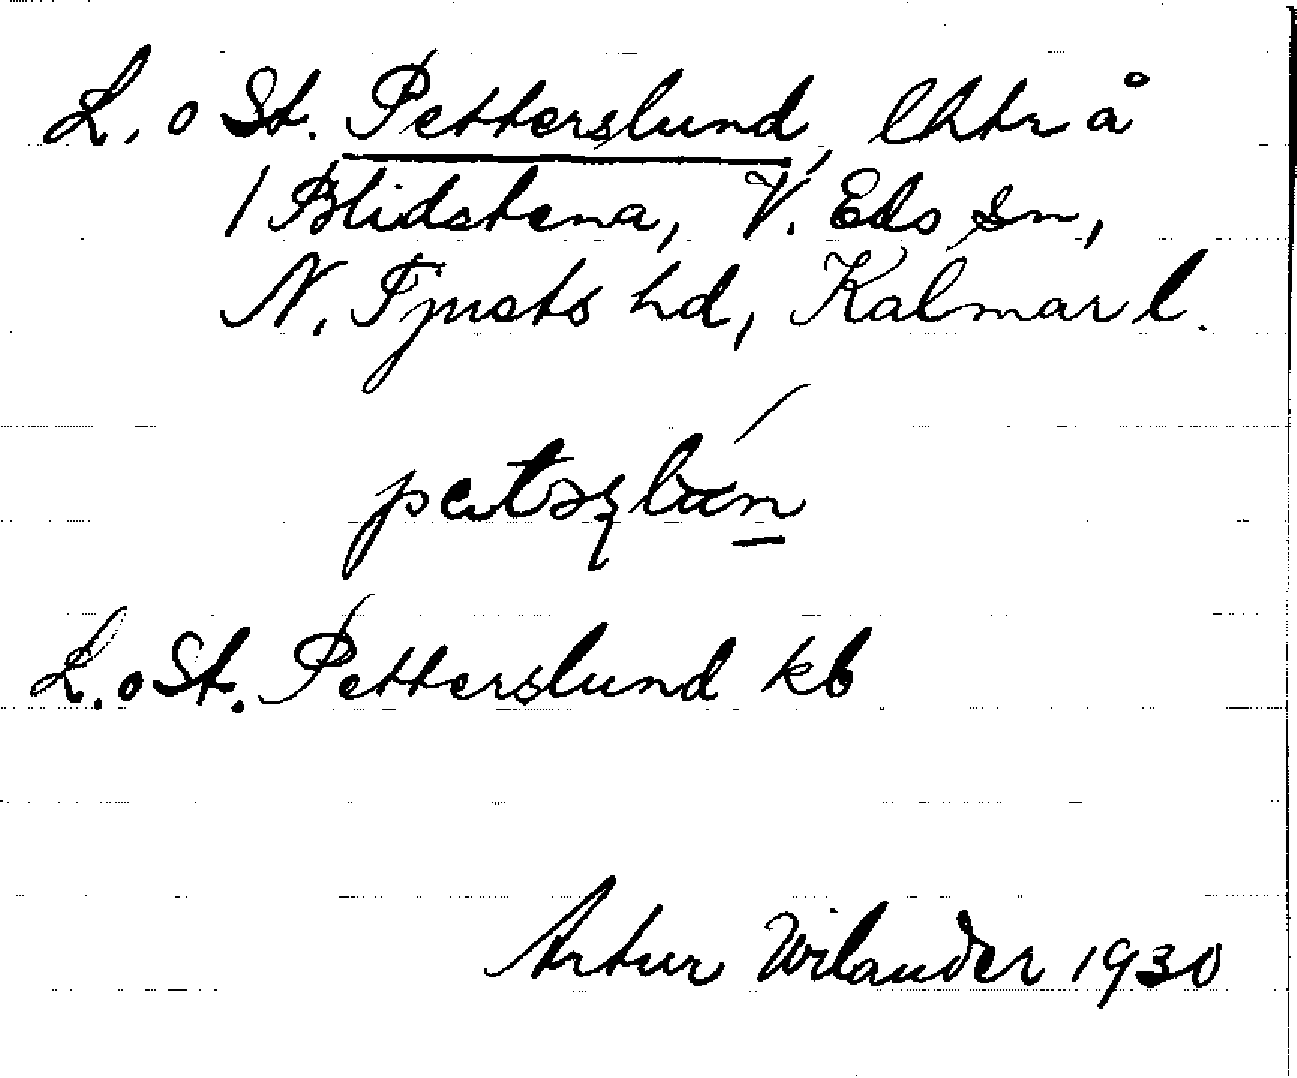 L. o St. Petterslund, lhtr å
1 Blidstena, V. Eds sn,
N. Tjusts hd, Kalmar l.
L. o St. Petterslund kb
Artur Wilander 1930